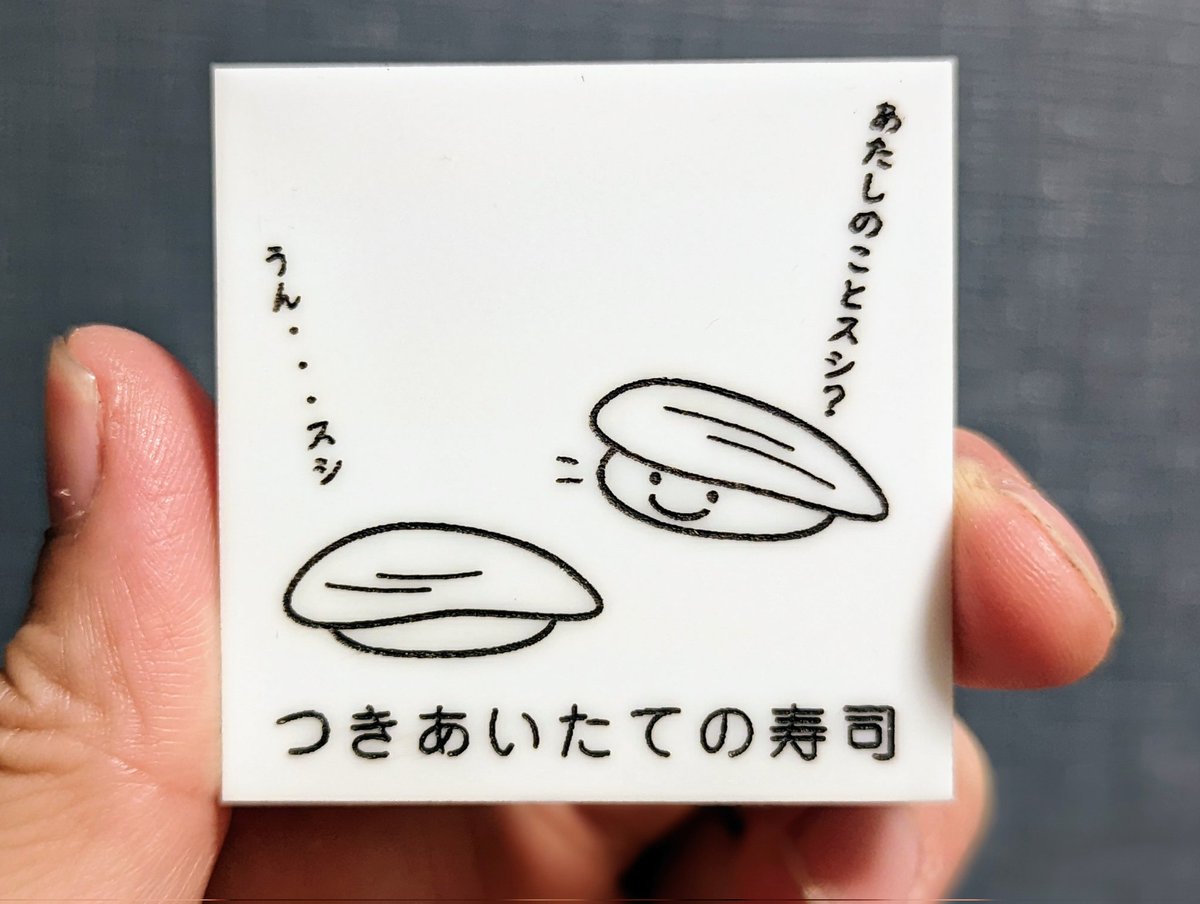 あたしのことスシ?
うん・・・スシ
つきあいたての寿司